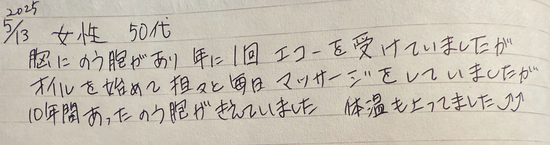 2025
5/13 女性 50代
胸にのう胞があり 年に1回 エコーを受けていましたが
オイルを始めて 担々と毎日 マッサージをしていましたが
10年間あったのう胞がきえていました 体温も上ってました⤴⤴